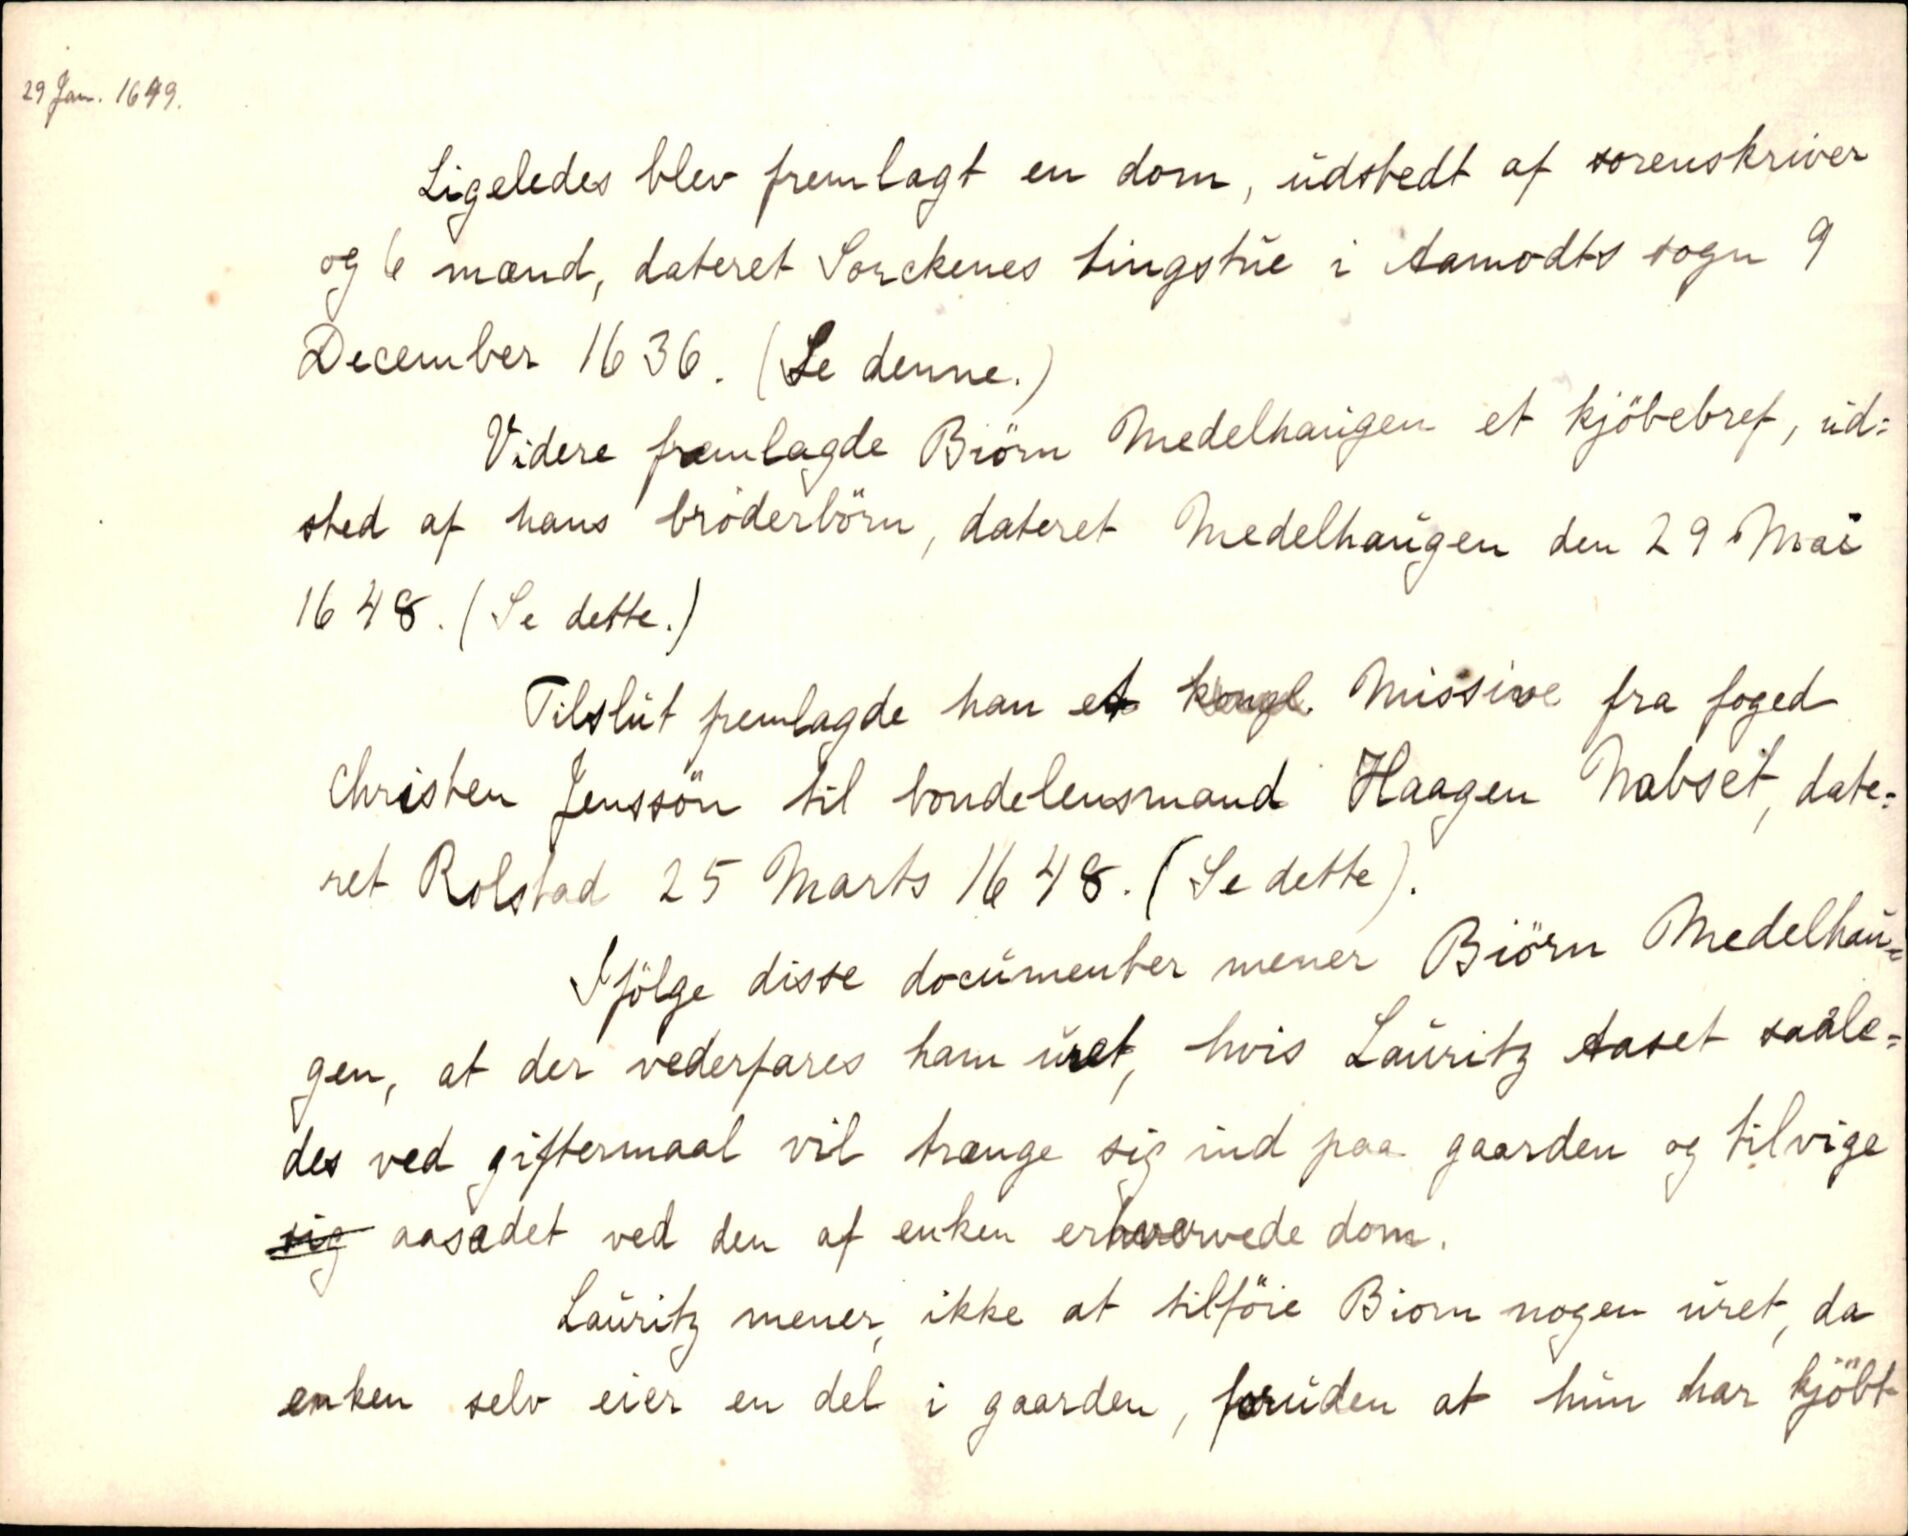 29 Jan. 1649.
Ligeledes blev fremlagt en dom, údstedt af sorenskriver
og 6 mænd, dateret Sorckenes tingstúe i Aamodts sogn 9
December 1636. (Se denne.)
Videre fremlagde Biörn Medelhaúgen et kjöbebref, úd=
sted af hans bröderbörn, dateret Medelhaúgen den 29 Mai
1648. (Se dette.)
Tilslút fremlagde han et Missive fra foged
Christen Jenssön til bondelensmand Haagen Nabset, date=
ret Rolstad 25 Marts 1648. (Se dette).
Ifölge disse documenter mener Biörn Medelhaú=
gen, at der vederfares ham úret, hvis Laúritz Aaset saale=
des ved giftermaal vil trænge sig ind paa gaarden og tilvige
sig aasædet ved den af enken erhvervede dom.
Laúritz mener, ikke at tilföie Biorn nogen úret, da
enken selv eier en del i gaarden, forúden at hún har kjöbt